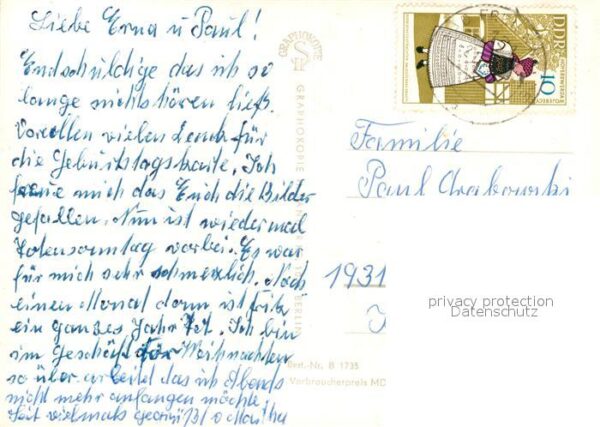 Liebe Erna u Paul!
Endschuldige das ich so
lange nichts hören ließ.
Vorallen vielen Dank für
die Geburtstagskarte. Ich
freue mich das Euch die Bilder
gefallen. Nun ist wiedermal
Totensonntag vorbei. Es war
für mich sehr schmerzlich. Noch
einen Monat dann ist Fritz
ein ganzes Jahr Tot. Ich bin
im Geschäft vor Weihnachten
so über arbeitet das ich Abends
nicht mehr anfangen möchte.
Seit vielmals gegrüßt
GRAPHOKOPIE
GRAPHOKOPIE
BERLIN
DDR
10
Familie
Paul
1931
privacy protection
Datenschutz
Best.-Nr. B 1735
Verbraucherpreis MD